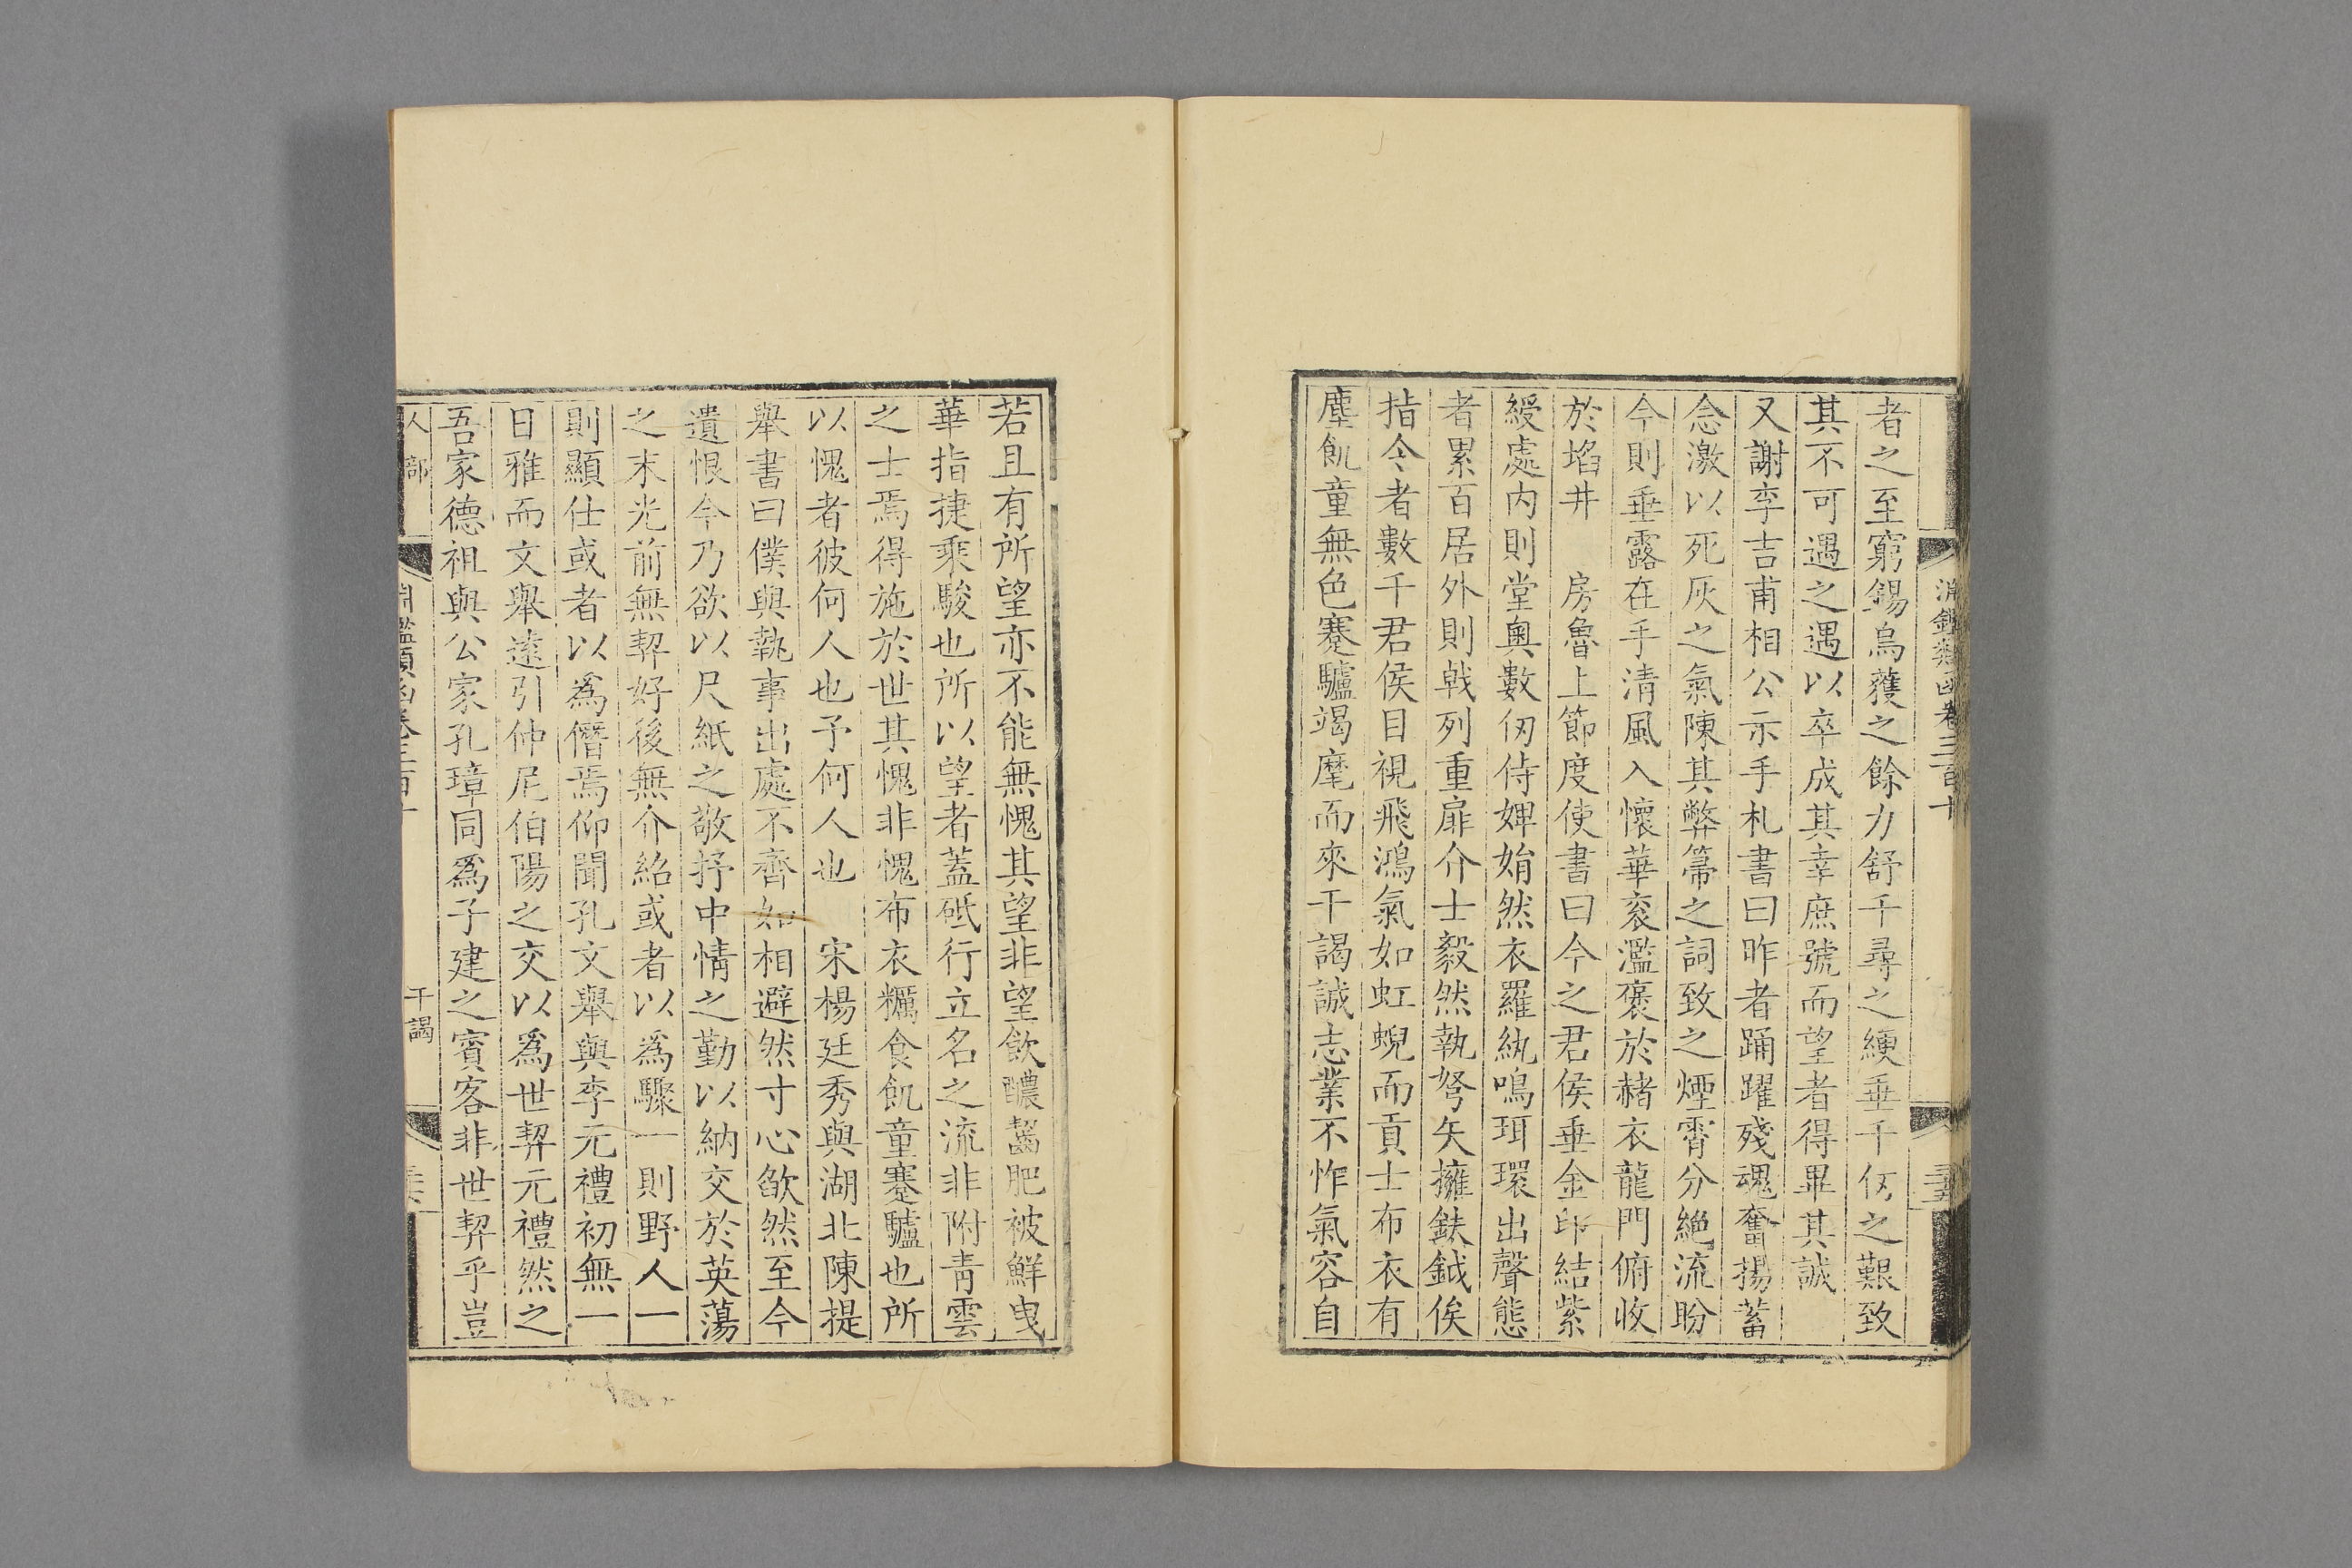 淵鑑類函卷三百十
三五
者之至窮錫烏蒦之餘力舒千尋之綆垂千仞之艱致
其不可遇之遇以卒成其幸庶號而望者得畢其誠
又謝李吉甫相公示手札書曰昨者踊躍殘魂奮揚蓄
念激以死灰之氣陳其弊箒之詞致之煙霄分絕流盼
今則垂露在手清風入懷華衮濫褒於赭衣龍門俯收
於埳井　房魯上節度使書曰今之君侯垂金印結紫
綬處內則堂奧數仞侍婢娋然衣羅紈鳴珥環出聲態
者累百居外則戟列重扉介士毅然執弩矢擁鈇鉞俟
指令者數千君侯目視飛鴻氣如虹蜺而貢士布衣有
塵飢童無色蹇驢竭麾而來干謁誠志業不怍氣容自
若且有所望亦不能無愧其望非望飲醲齧肥被鮮曳
華指捷乘駿也所以望者蓋砥行立名之流非附青雲
之士焉得施於世其愧非愧布衣糲食飢童蹇驢也所
以愧者彼何人也予何人也　宋楊廷秀與湖北陳提
舉書曰僕與執事出處不齊如相避然寸心欿然至今
遺恨今乃欲以尺紙之敬抒中情之勤以納交於英蕩
之末光前無契好後無介紹或者以為驟一則野人一
則顯仕或者以為僭焉仰聞孔文舉與李元禮初無一
日雅而文舉遠引仲尼伯陽之交以為世契元禮然之
吾家德祖與公家孔璋同為子建之賓客非世契乎豈
人部
淵鑑類函卷三百十
干謁
三六